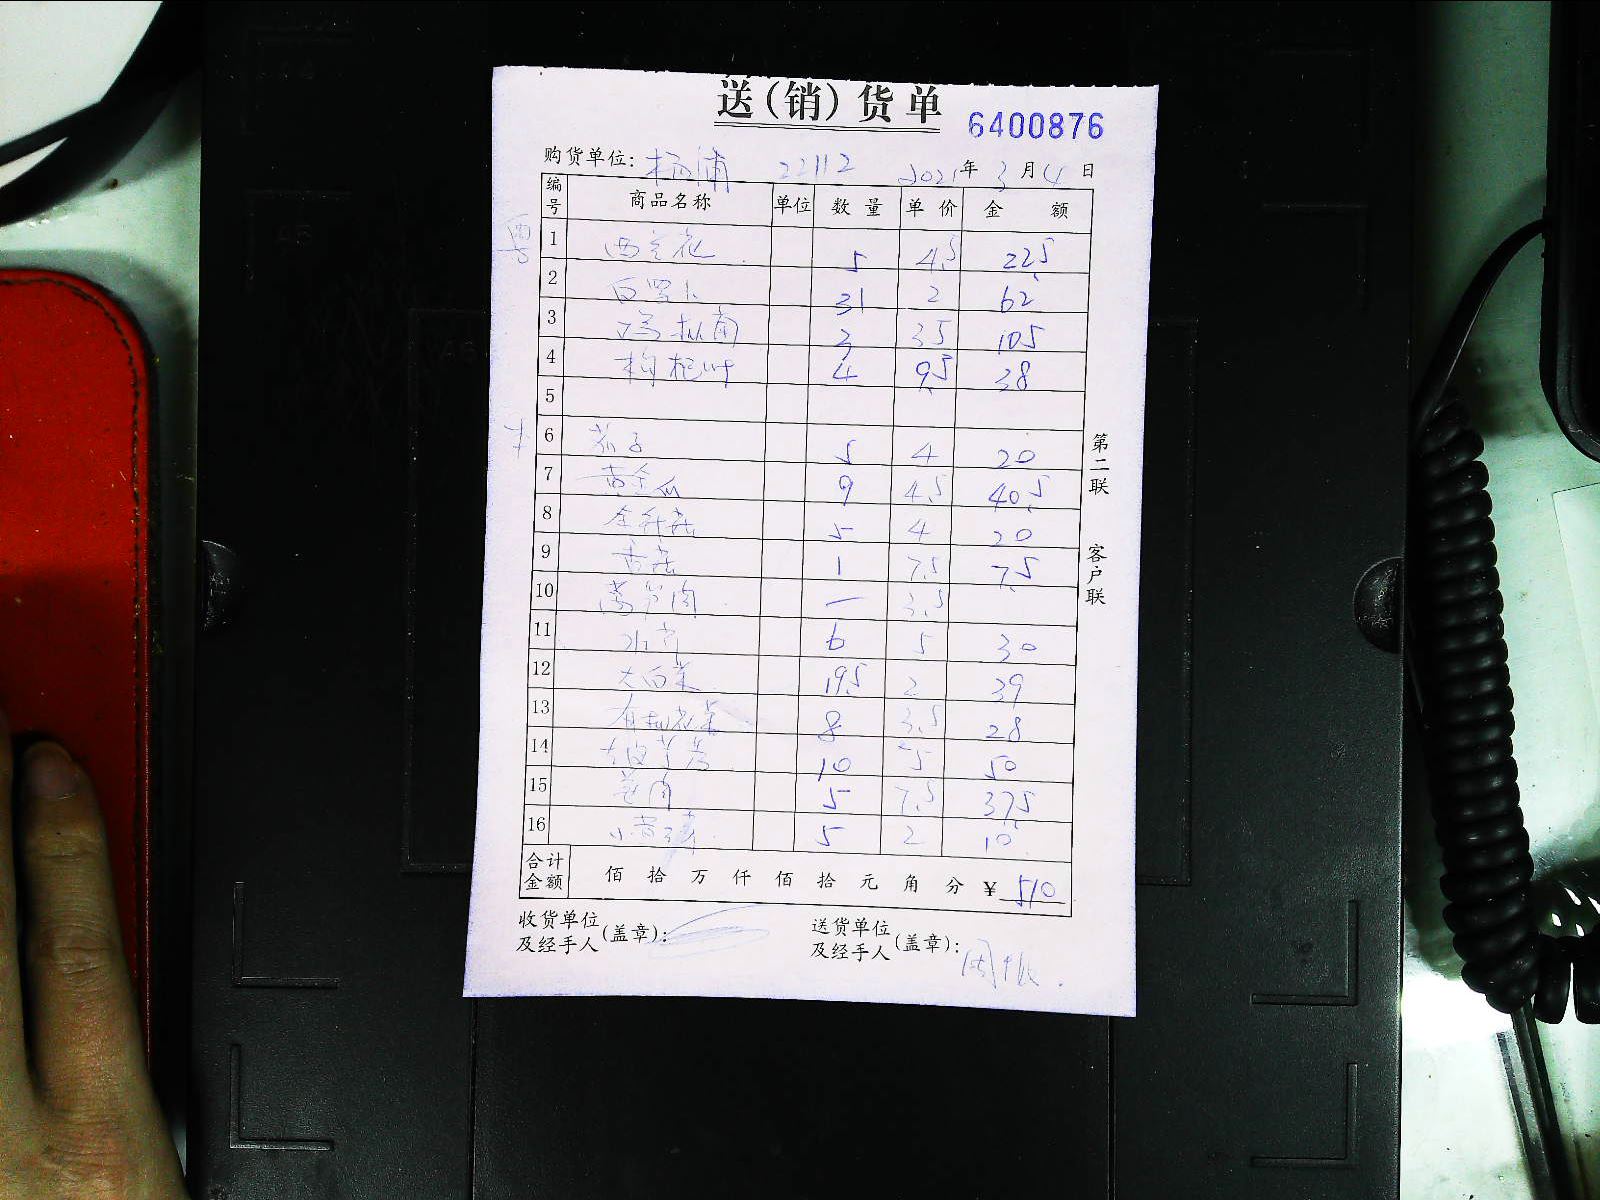 送(销)货单
6400876
购货单位: 杨浦 22112 2021年3月4日
编号 商品名称 单位 数量 单价 金额
粤 1 西兰花 5 4.5 22.5
2 白罗卜 31 2 62
3 3 3.5 10.5
4 枸杞叶 4 9.5 38
5
6 茄子 5 4 20
7 黄金瓜 9 4.5 40.5
8 金针菇 5 4 20
9 香菇 1 7.5 7.5
10 莴笋肉 一 3.5
11 水芹 6 5 30
12 大白菜 19.5 2 39
13 有机花菜 8 3.5 28
14 10 5 50
15 姜肉 5 7.5 37.5
16 5 2 10
合计金额 佰拾万仟佰拾元角分 ¥ 510
收货单位及经手人(盖章):
送货单位及经手人(盖章):
第二联 客户联